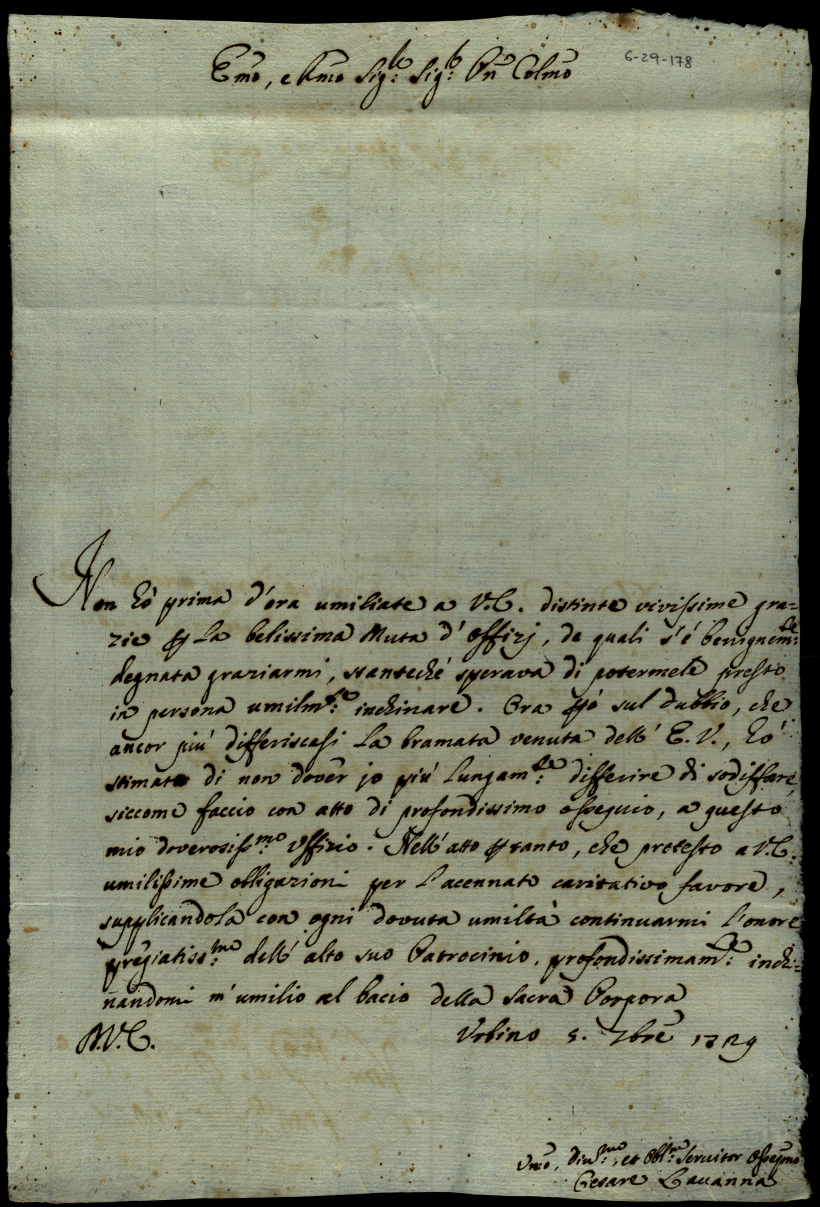 Emo, e Rmo Sig:re Sig:re Pne Colmo
6-29-178
Non hò prima d'ora umiliate a V.E. distinte vivissime gra=
zie p la belissima Muta d'Offizj, de quali s'è benignem:te
degnata graziarmi, stanteché sperava di potermele presto
in persona umilm:te inchinare. Ora pò sul dubbio, che
ancor più differiscasi la bramata venuta dell'E.V., hò
stimato di non dover jo più lungam:te differire di sodisfare,
siccome faccio con atto di profondissimo ossequio, a questo
mio doverosiss:mo Uffizio. Nell'atto ptanto, che protesto a V.E.
umilissime obligazioni per l'acennato caritativo favore,
supplicandola con ogni dovuta umiltà continuarmi l'onore
pregiatiss:mo dell'alto suo Patrocinio, profondissimam:te inchi=
nandomi m'umilio al bacio della Sacra Porpora
D.V.E. Urbino 5. 7bre 1729
Umo, Div:mo, et Obl:mo Servitor Ossequmo
Cesare Lavanna